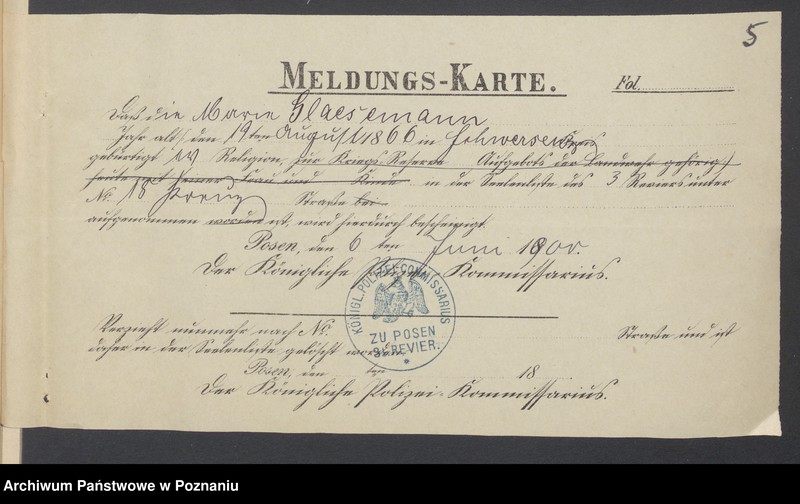 5
MELDUNGS-KARTE. Fol.
Daß die Marie Glaesemann
Jahr alt, den 19ten August 1866 in Schwersenz
gebürtigt ev Religion, für Kriegs-Reserve Aufgebots der Landwehr gehörig,
seiner Frau und Kinde in der Seelenliste des 3 Reviers unter
No. 18 Straße bei
aufgenommen worden ist, wird hierdurch bescheinigt.
Posen, den 6 ten Juni 1900.
Der Königliche Polizei-Kommissarius.
KÖNIGL. POLIZEI-COMMISSARIUS
ZU POSEN
REVIER.
Verzieht nunmehr nach No. Straße und ist
daher in der Seelenliste gelöscht worden.
Posen, den ten 18
Der Königliche Polizei-Kommissarius.
Archiwum Państwowe w Poznaniu